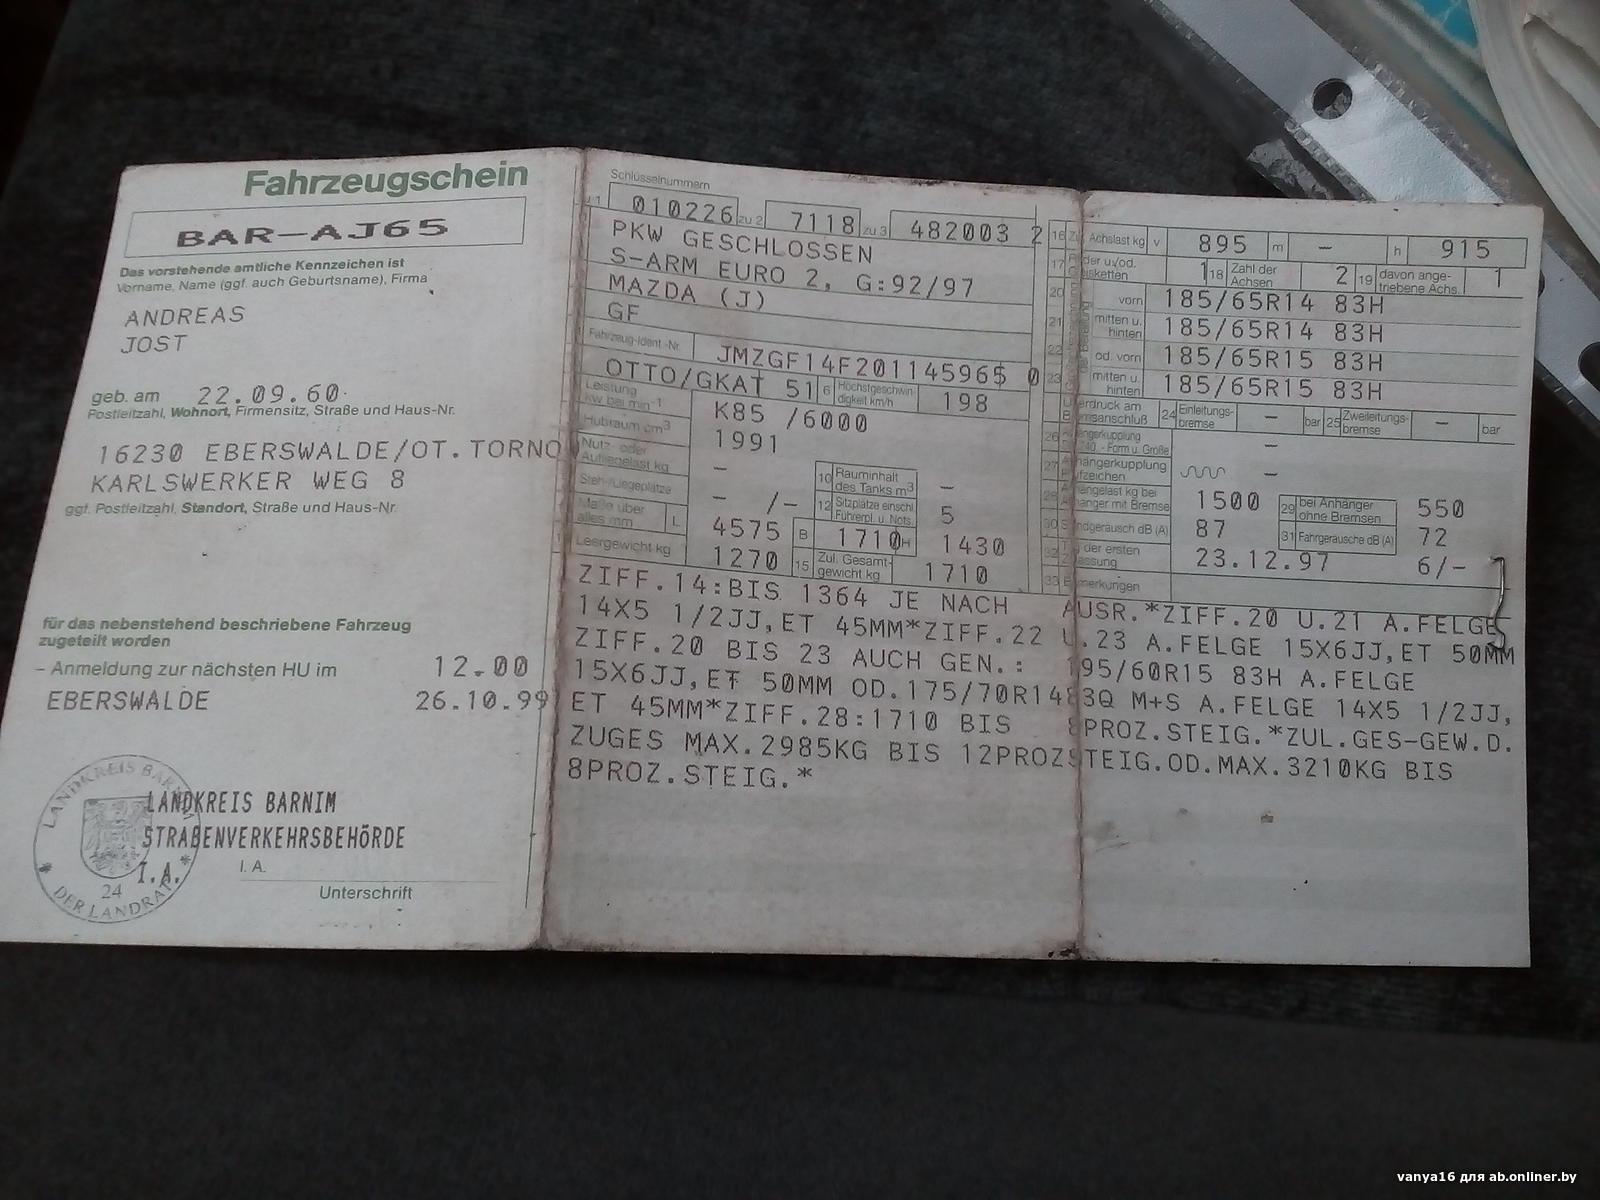 Fahrzeugschein
BAR-AJ65
Das vorstehende amtliche Kennzeichen ist
Vorname, Name (ggf. auch Geburtsname), Firma
ANDREAS
JOST
geb. am 22.09.60
Postleitzahl, Wohnort, Firmensitz, Straße und Haus-Nr.
16230 EBERSWALDE/OT. TORNO
KARLSWERKER WEG 8
ggf. Postleitzahl, Standort, Straße und Haus-Nr.
für das nebenstehend beschriebene Fahrzeug
zugeteilt worden
– Anmeldung zur nächsten HU im 12.00
EBERSWALDE 26.10.99
LANDKREIS BARNIM
DER LANDRAT
24
LANDKREIS BARNIM
STRAßENVERKEHRSBEHÖRDE
I.A.
I. A.
Unterschrift
Schlüsselnummern
1 010226 zu 2 7118 zu 3 482003 2
PKW GESCHLOSSEN
S-ARM EURO 2, G:92/97
MAZDA (J)
GF
Fahrzeug-Ident.-Nr. JMZGF14F201145965$ 0
OTTO/GKAT 51 6 Höchstgeschwin-
digkeit km/h 198
Leistung
kW bei min-1 K85 /6000
Hubraum cm3 1991
Nutz- oder
Aufliegelast kg – 10 Rauminhalt
des Tanks m3 –
Steh-/Liegeplätze – /– 12 Sitzplätze einschl.
Führerpl. u. Nots. 5
Maße über
alles mm L 4575 B 1710 H 1430
Leergewicht kg 1270 15 Zul. Gesamt-
gewicht kg 1710
16 Achslast kg v 895 m – h 915
17 1 18 Zahl der
Achsen 2 19 davon ange-
triebene Achs. 1
20 vorn 185/65R14 83H
21 mitten u.
hinten 185/65R14 83H
22 od. vorn 185/65R15 83H
23 mitten u.
hinten 185/65R15 83H
24 Einleitungs-
bremse – bar 25 Zweileitungs-
bremse – bar
26 –
27 –
28 1500 29 bei Anhänger
ohne Bremsen 550
30 87 31 Fahrgeräusche dB (A) 72
32 23.12.97 6/–
33
ZIFF.14:BIS 1364 JE NACH AUSR.*ZIFF.20 U.21 A.FELGE
14X5 1/2JJ,ET 45MM*ZIFF.22 U.23 A.FELGE 15X6JJ,ET 50MM
ZIFF.20 BIS 23 AUCH GEN.: 195/60R15 83H A.FELGE
15X6JJ,ET 50MM OD.175/70R14 83Q M+S A.FELGE 14X5 1/2JJ,
ET 45MM*ZIFF.28:1710 BIS 8PROZ.STEIG.*ZUL.GES-GEW.D.
ZUGES MAX.2985KG BIS 12PROZSTEIG.OD.MAX.3210KG BIS
8PROZ.STEIG.*
vanya16 для ab.onliner.by